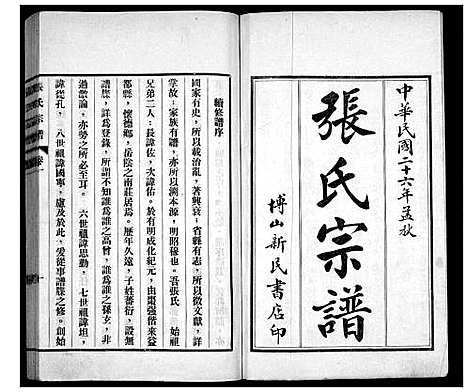 中華民國二十六年孟秋
張氏宗譜
博山新民書店印
續修譜序
國家有史，所以載治亂，著興衰，省縣有志，所以徵文獻，詳
掌故：家族有譜，亦所以溯本源，明昭穆也。吾張氏　始祖
兄弟二人：長諱佐，次諱佑。於有明成化紀元，由棗強偕來益
都縣，懷德鄉，岳陰之南莊居焉。歷年久遠，子姓蕃衍，設無
譜牒，詳爲登錄，所謂不知誰爲誰之高曾，誰爲誰之孫玄，非
過激論，亦勢之所必至耳。　六世祖諱思勤，七世祖諱坦，
諱從孔，　八世祖諱國寧，慮及於此，爰從事譜牒之修。創始
張氏宗譜
卷一